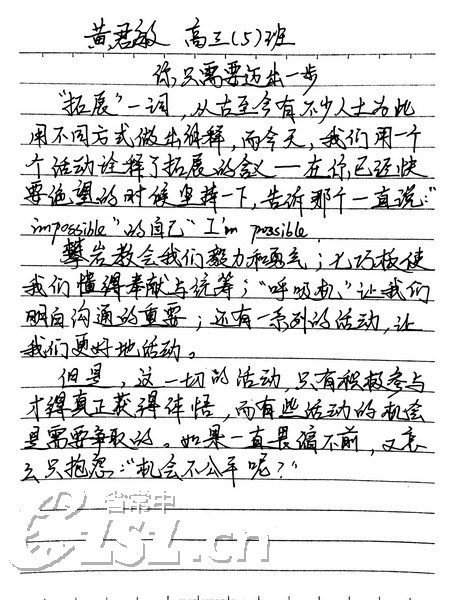 黄君敏 高三(5)班
你只需要迈出一步
“拓展”一词，从古至今有不少人士为此
用不同方式做出解释，而今天，我们用一个
个活动诠释了拓展的含义——在你已经快
要绝望的时候坚持一下，告诉那个一直说：“
impossible”的自己“I'm possible
攀岩教会我们毅力和勇气；七巧板使
我们懂得奉献与统筹；“呼叫机”让我们
明白沟通的重要；还有一系列的活动，让
我们更好地活动。
但是，这一切的活动，只有积极参与
才得真正获得体悟，而有些活动的机会
是需要争取的。如果一直畏缩不前，又怎
么只抱怨：“机会不公平呢？”
省常中
SSL.cn